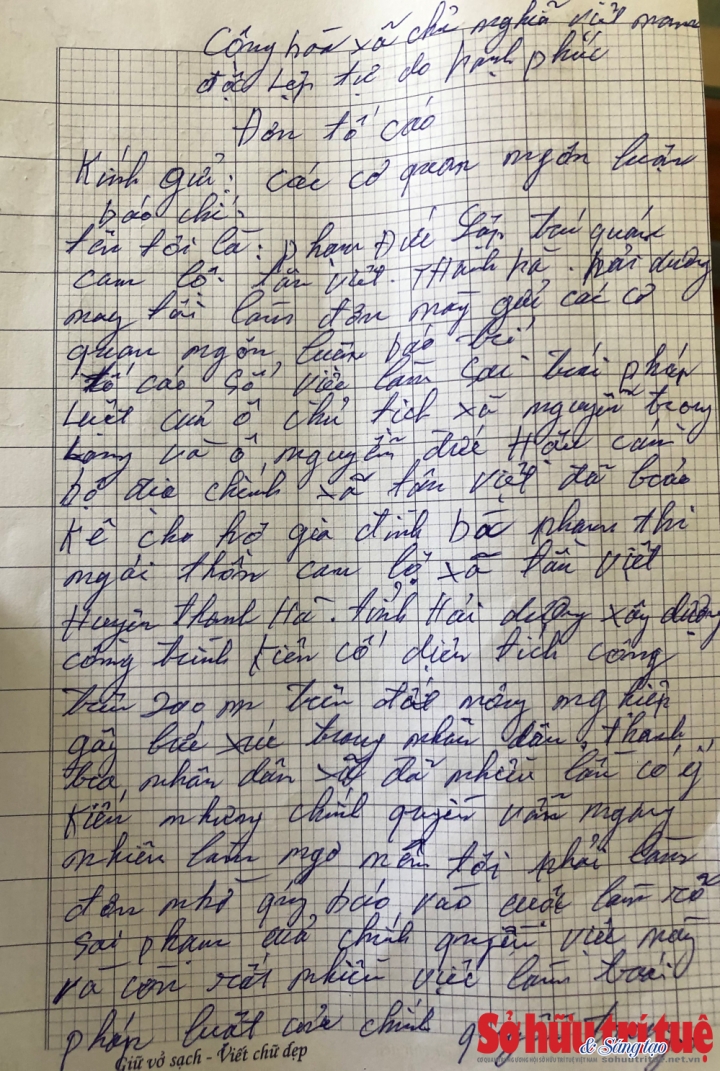 Cộng hòa xã chủ nghĩa việt nam
độc lập tự do hạnh phúc
Đơn tố cáo
Kính gửi: các cơ quan ngôn luận
báo chí
tên tôi là: phạm Đức Lập trú quán
cam lộ. tân việt. Thanh hà. hải dương
nay tôi làm đơn này gửi các cơ
quan ngôn luận báo trí
tố cáo số việc làm sai trái pháp
luật của ô chủ tịch xã nguyễn trọng
và ô nguyễn đức Hậu cán
bộ địa chính xã tân việt đã bảo
kê cho hộ gia đình bà phạm thị
ngái thôn cam lộ xã tân việt
Huyện thanh Hà. tỉnh Hải dương xây dựng
công trình kiên cố diện tích công
trên đất nông nghiệp
gây bức xúc trong nhân dân, thanh
tra nhân dân xã đã nhiều lần có ý
kiến nhưng chính quyền vẫn ngang
nhiên làm ngơ nên tôi phải làm
đơn nhờ quý báo vào cuộc làm rõ
sai phạm của chính quyền việc này
và còn rất nhiều việc làm trái
pháp luật của chính
Giữ vở sạch - Viết chữ đẹp
Sở hữu trí tuệ
& Sáng tạo